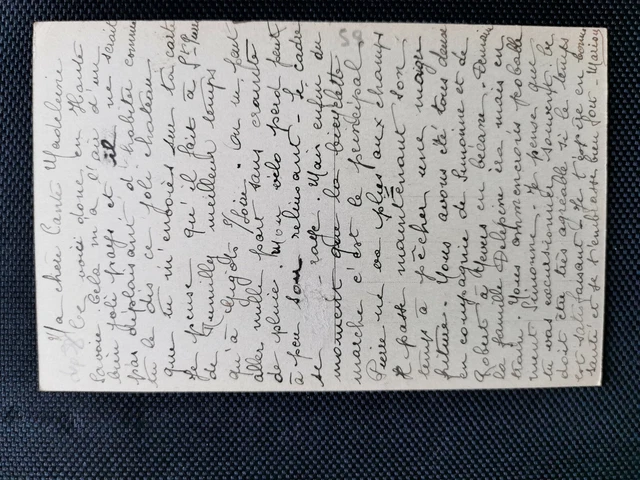 Ma chère Tante Madeleine
Te voici donc en Haute
Savoie. Cela m'a l'air d'un
bien joli pays et il ne serait
pas déplaisant d'habiter comme
tu le dis ce joli château
que tu m'envoies sur ta carte
Je pense qu'il fait à St Paul
de meilleur temps
qu'à . Ici on ne peut
aller nulle part sans crainte
de pluie. Mon vélo perd peu
à peu son reluisant - le cadre
se raye. Mais enfin du
moment que la bicyclette
marche c'est le principal.
Pierre ne va plus aux champs
Il passe maintenant son
temps à pêcher une maigre
friture. Nous avons été tous deux
en compagnie de Simone et de
Robert à Yèvres en bécane. Demain
la famille Delaporte ira mais en
train. Nous emmènerons probable
ment Simone. Je pense que
tu vas excursionner souvent. Ce
doit être très agréable si le temps
est satisfaisant. Je t'espère en bonne
santé et je t'embrasse bien fort - Marion